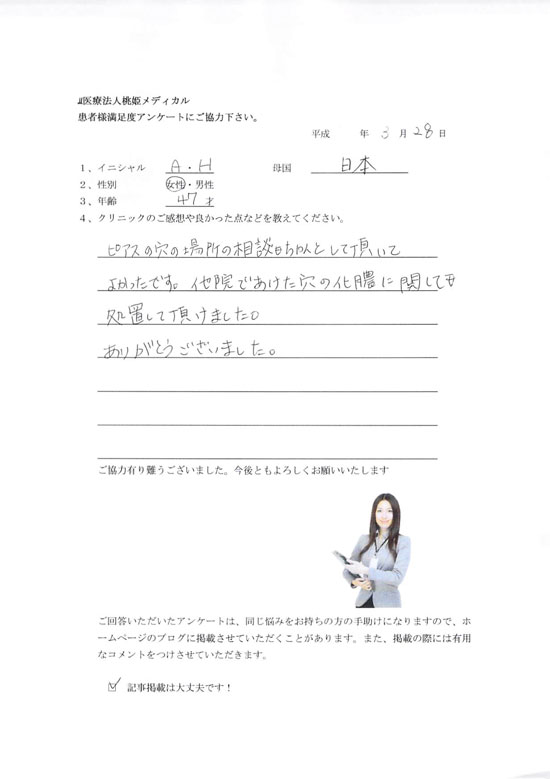 医療法人桃姫メディカル
患者様満足度アンケートにご協力下さい。
平成 年 3 月 28 日
1、イニシャル A・H 母国 日本
2、性別 女性・男性
3、年齢 47 才
4、クリニックのご感想や良かった点などを教えてください。
ピアスの穴の場所の相談もちゃんとして頂いて
よかったです。他院であけた穴の化膿に関しても
処置して頂けました。
ありがとうございました。
ご協力有り難うございました。今後ともよろしくお願いいたします
ご回答いただいたアンケートは、同じ悩みをお持ちの方の手助けになりますので、ホ
ームページのブログに掲載させていただくことがあります。また、掲載の際には有用
なコメントをつけさせていただきます。
記事掲載は大丈夫です！